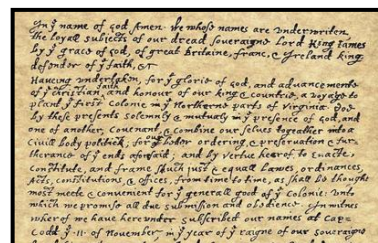 In yͤ name of god Amen. We whose names are underwriten,
the loyall subjects of our dread soveraigne Lord King James
by yͤ grace of god, of great Britaine, franc, & Ireland king,
defender of yͤ faith, &c
Haveing undertaken, for yͤ glorie of god, and advancemente
of yͤ christian faith and honour of our king & countrie, a voyage to
plant yͤ first Colonie in yͤ Northerne parts of Virginia. Doe
by these presents solemnly & mutualy in yͤ presence of god, and
one of another, Covenant, & combine our selves togeather into a
Civill body politick; for yͤ better ordering, & preservation & fur-
therance of yͤ ends aforesaid; and by vertue hearof to enacte,
constitute, and frame such just & equall Lawes, ordinances,
Acts, constitutions, & offices, from time to time, as shall be thought
most meete & convenient for yͤ generall good of yͤ Colonie: unto
which we promise all due submission and obedience. In witnes
wherof we have hereunder subscribed our names at Cape
Codd yͤ ·11· of November, in yͤ year of yͤ raigne of our soveraigne